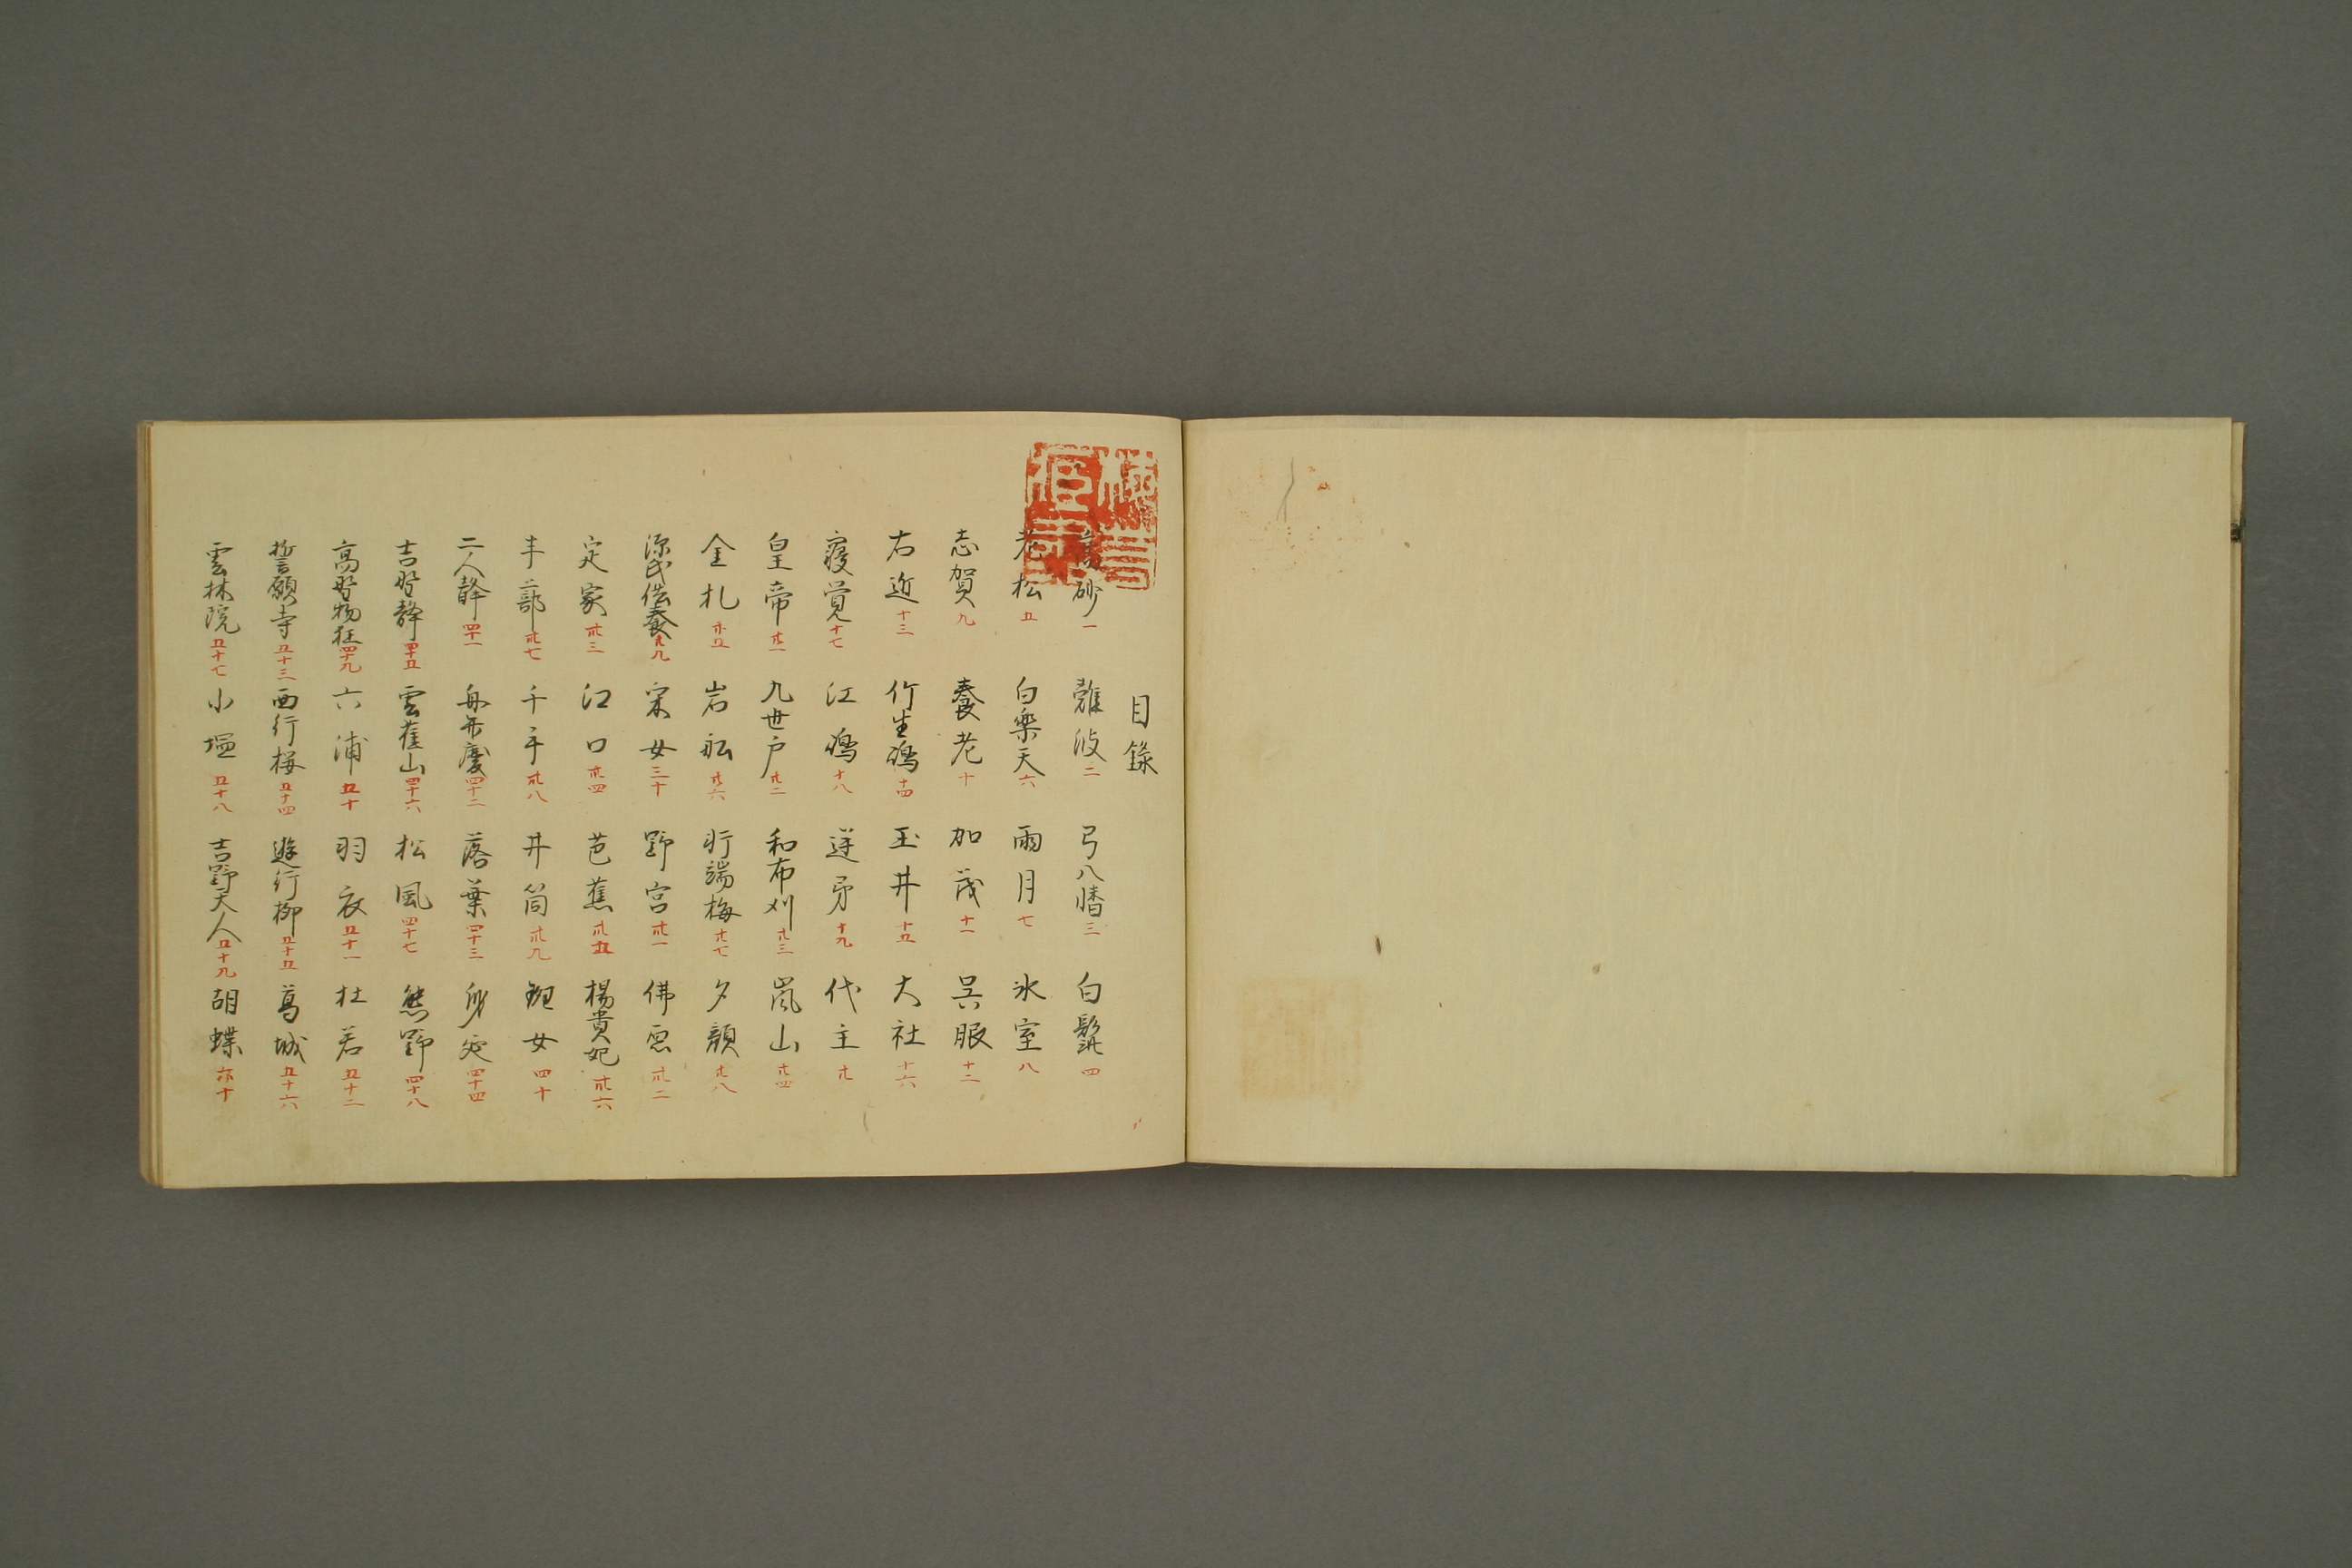 目錄
高砂一 難波二 弓八幡三 白髭四
老松五 白楽天六 雨月七 氷室八
志賀九 養老十 加茂十一 呉服十二
右近十三 竹生嶋十四 玉井十五 大社十六
寝覚十七 江嶋十八 逆矛十九 代主廿
皇帝廿一 九世戸廿二 和布刈廿三 嵐山廿四
金札廿五 岩舩廿六 軒端梅廿七 夕顔廿八
源氏供養廿九 采女三十 野宮卅一 佛原卅二
定家卅三 江口卅四 芭蕉卅五 楊貴妃卅六
半蔀卅七 千手卅八 井筒卅九 斑女四十
二人静四十一 舟弁慶四十二 落葉四十三 身延四十四
吉野静四十五 雲雀山四十六 松風四十七 熊野四十八
高野物狂四十九 六浦五十 羽衣五十一 杜若五十二
誓願寺五十三 西行桜五十四 遊行柳五十五 葛城五十六
雲林院五十七 小塩五十八 吉野天人五十九 胡蝶六十